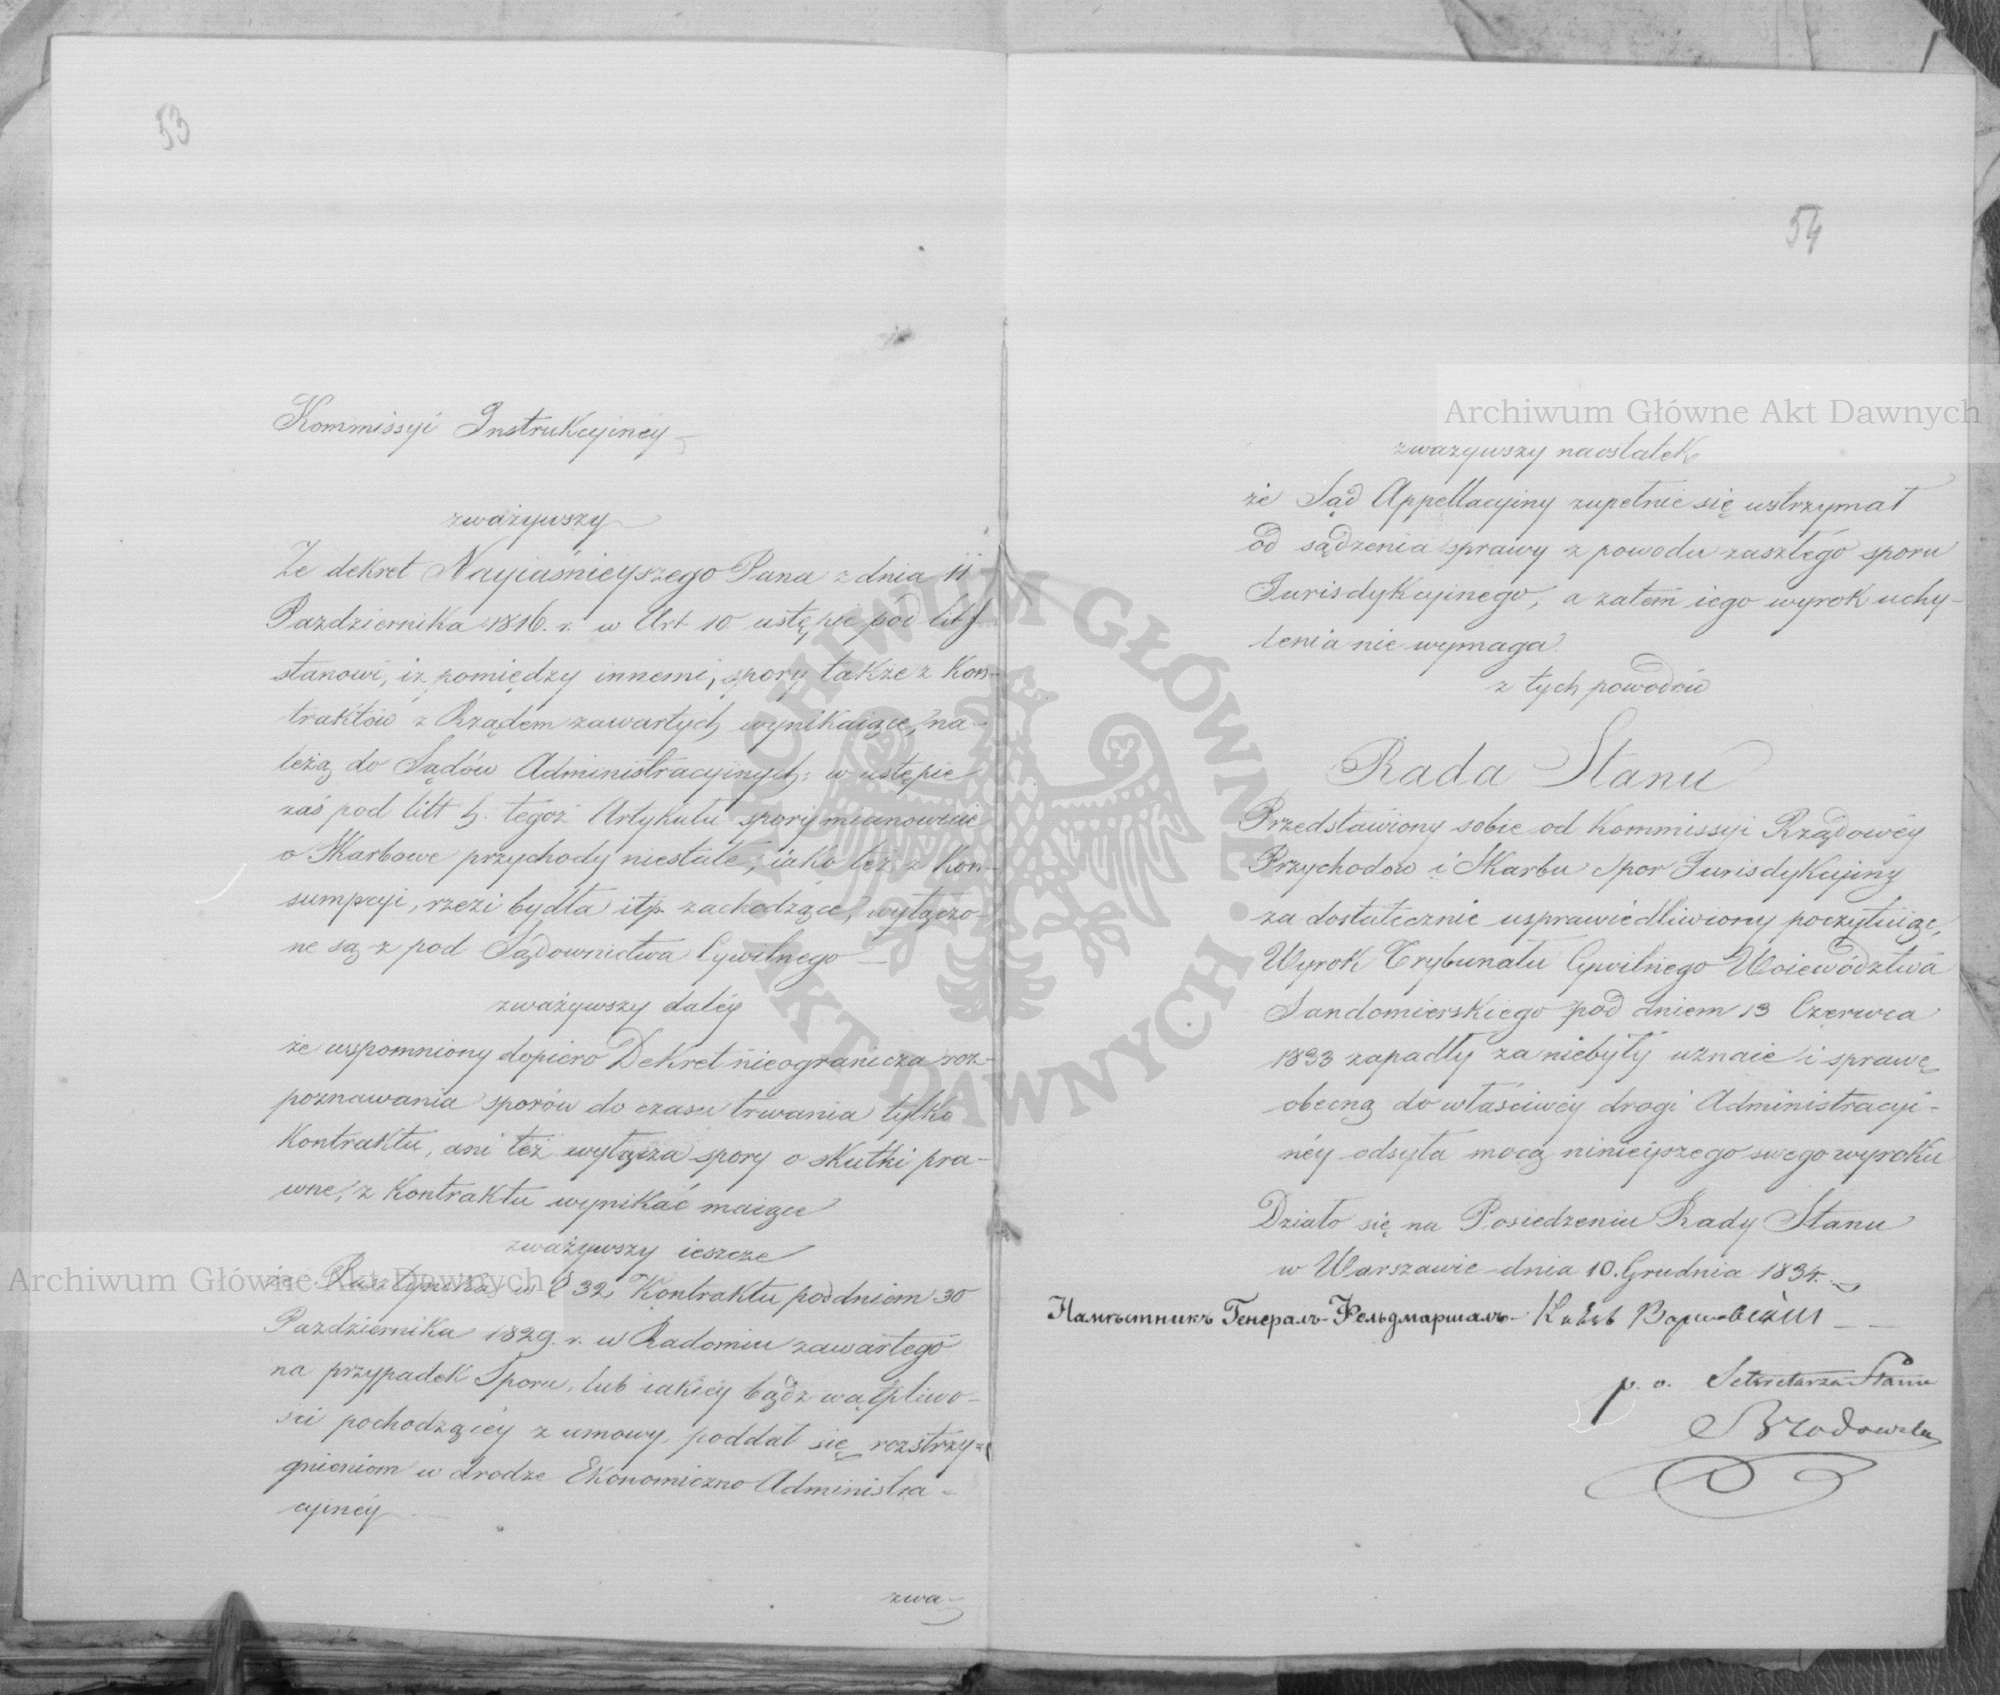 53
Kommissyi Instrukcyiney
zważywszy
Że dekret Nayiaśnieyszego Pana z dnia 11
Pazdziernika 1816. r. w Art 10 ustępie pod lit f
stanowi, iż pomiędzy innemi, spory także z Kon-
traktów z Rządem zawartych wynikaiące, na-
leżą do Sądów Administracyinych; w ustępie
zaś pod litt h. tegoż Artykułu spory mianowicie
o Skarbowe przychody niestałe, iako też z Kon-
sumpcyi, rzezi bydła itp. zachodzące, wyłączo-
ne są z pod Sądownictwa Cywilnego
zważywszy daléy
że wspomniony dopiero Dekret nieogranicza roz-
poznawania sporów do czasu trwania tylko
Kontraktu, ani też wyłącza spory o skutki pra-
wne, z Kontraktu wynikać maiące
zważywszy ieszcze
że w § 32 Kontraktu pod dniem 30
Pazdziernika 1829. r. w Radomiu zawartego
na przypadek Sporu, lub iakiéy bądz wątpliwo-
ści pochodzącéy z umowy, poddał się rozstrzy-
gnieniom w drodze Ekonomiczno Administra-
cyinéy
zwa-
54
zwazywszy naostatek
że Sąd Appellacyiny zupełnie się wstrzymał
od sądzenia sprawy z powodu zaszłego sporu
Jurisdykcyinego, a zatem iego wyrok uchy-
lenia nie wymaga
z tych powodów
Rada Stanu
Przedstawiony sobie od Kommissyi Rządowéy
Przychodów i Skarbu Spor Jurisdykcyiny
za dostatecznie usprawiedliwiony poczytuiąc,
Wyrok Trybunału Cywilnego Woiewództwa
Sandomierskiego pod dniem 13 Czerwca
1833 zapadły za niebyły uznaie i sprawę
obecną do właściwéy drogi Administracyi-
néy odsyła mocą ninieyszego swego wyroku
Działo się na Posiedzeniu Rady Stanu
w Warszawie dnia 10. Grudnia 1834.
Намѣстникъ Генералъ-Фельдмаршалъ- Князь Варшавскій
p. o. Sekretarza Stanu
Brodowski
Archiwum Główne Akt Dawnych
Archiwum Główne Akt Dawnych
ARCHIWUM GŁÓWNE AKT DAWNYCH